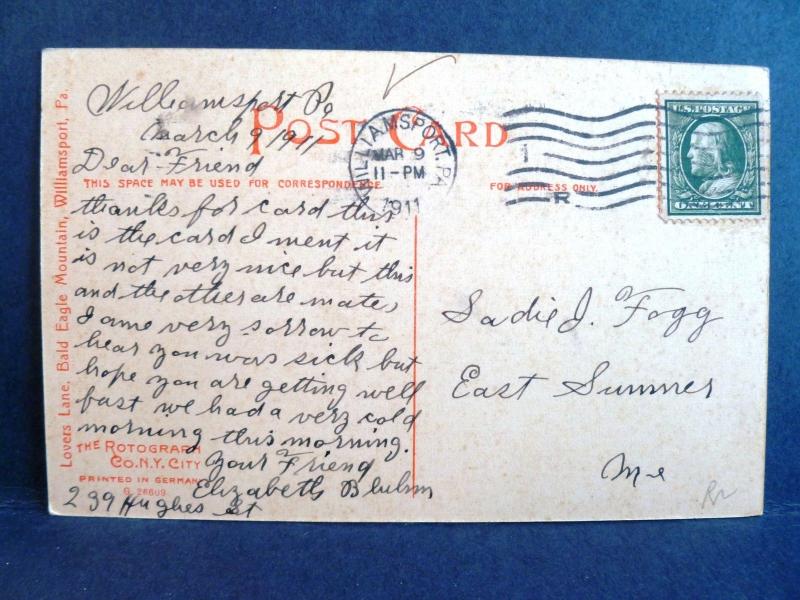 Williamsport Pa
March 9 1911
Dear Friend
POST CARD
THIS SPACE MAY BE USED FOR CORRESPONDENCE.
FOR ADDRESS ONLY.
thanks for card this
is the card I ment it
is not very nice but this
and the other are mates
I ame very sorrow to
hear you was sick but
hope you are getting well
fast we had a very cold
morning this morning.
Your Friend
Elizabeth
239 Hughes St
Lovers Lane, Bald Eagle Mountain, Williamsport, Pa.
THE ROTOGRAPH
CO. N.Y. CITY
PRINTED IN GERMANY
G. 26609
WILLIAMSPORT, PA.
MAR 9
11-PM
1911
1
R
U.S. POSTAGE
ONE CENT
Sadie J. Fogg
East Sumner
Me